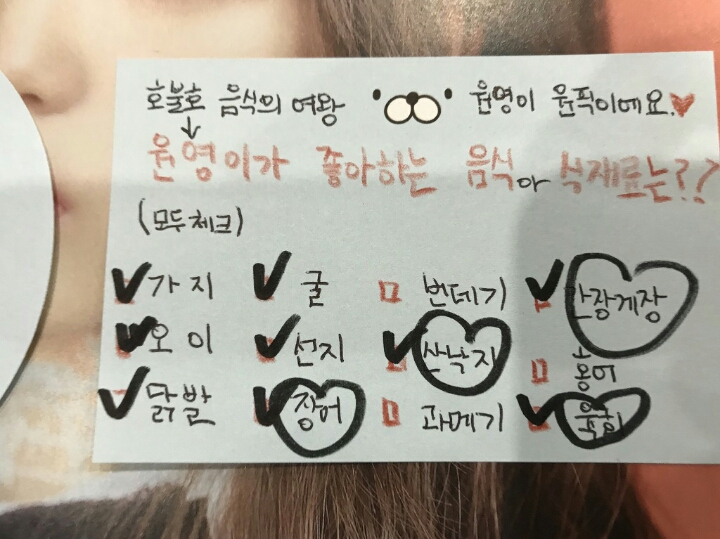 호불호 음식의 여왕 원영이 원픽이에요.♥
↓
원영이가 좋아하는 음식아 식재료는??
(모두체크)
✓가지 ✓굴 □ 번데기 ✓간장게장
✓오이 ✓선지 ✓산낙지 □ 홍어
✓닭발 ✓장어 □ 과메기 ✓육회